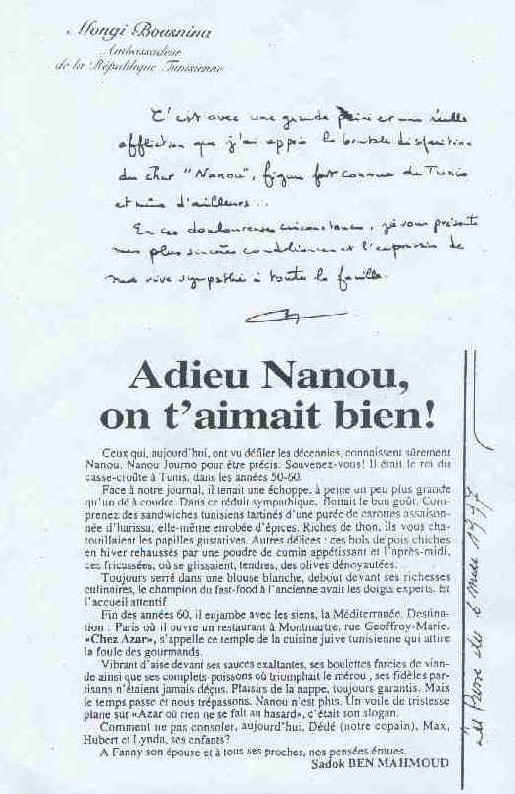 Mongi Bousnina
Ambassadeur
de la République Tunisienne
C'est avec une grande peine et une réelle
affliction que j'ai appris la brutale disparition
du cher "Nanou", figure fort connue de Tunis
et même d'ailleurs...
En ces douloureuses circonstances, je vous présente
mes plus sincères condoléances et l'expression de
ma vive sympathie à toute la famille.
Adieu Nanou,
on t'aimait bien!
Ceux qui, aujourd'hui, ont vu défiler les décennies, connaissent sûrement
Nanou. Nanou Journo pour être précis. Souvenez-vous! Il était le roi du
casse-croûte à Tunis, dans les années 50-60.
Face à notre journal, il tenait une échoppe, à peine un peu plus grande
qu'un dé à coudre. Dans ce réduit sympathique, flottait le bon goût. Com-
prenez des sandwiches tunisiens tartinés d'une purée de carottes assaison-
née d'harissa, elle-même enrobée d'épices. Riches de thon, ils vous cha-
touillaient les papilles gustatives. Autres délices : ces bols de pois chiches
en hiver rehaussés par une poudre de cumin appétissant et l'après-midi,
ces fricassées, où se glissaient, tendres, des olives dénoyautées.
Toujours serré dans une blouse blanche, debout devant ses richesses
culinaires, le champion du fast-food à l'ancienne avait les doigts experts. Et
l'accueil attentif.
Fin des années 60, il enjambe avec les siens, la Méditerranée. Destina-
tion : Paris où il ouvre un restaurant à Montmartre, rue Geoffroy-Marie.
«Chez Azar», s'appelle ce temple de la cuisine juive tunisienne qui attire
la foule des gourmands.
Vibrant d'aise devant ses sauces exaltantes, ses boulettes farcies de vian-
de ainsi que ses complets poissons où triomphait le mérou, ses fidèles par-
tisans n'étaient jamais déçus. Plaisirs de la nappe, toujours garantis. Mais
le temps passe et nous trépassons. Nanou n'est plus. Un voile de tristesse
plane sur «Azar où rien ne se fait au hasard», c'était son slogan.
Comment ne pas consoler, aujourd'hui, Dédé (notre copain), Max,
Hubert et Lynda, ses enfants?
A Fanny son épouse et à tous ses proches, nos pensées émues.
Sadok BEN MAHMOUD
La Presse du 6 mars 1997